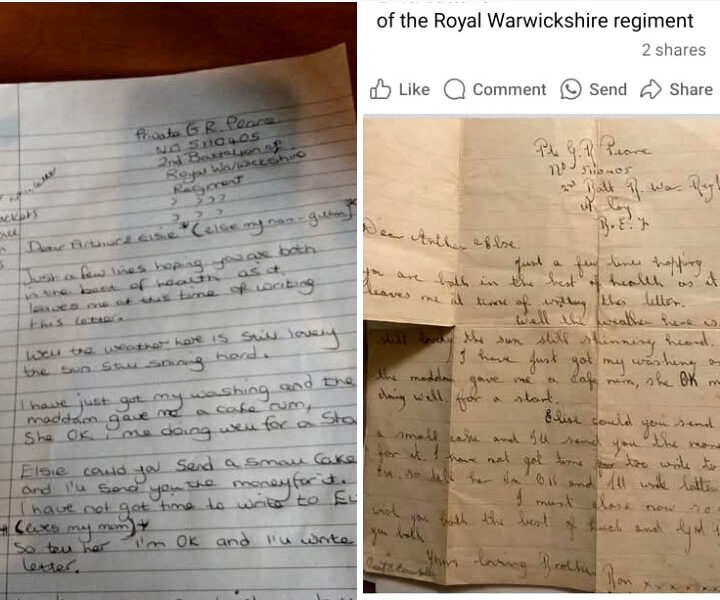 Private G.R. Peare
NO 5110405
2nd Battalion of
Royal Warwickshire
Regiment
? ? ? ?
? ? ?
Dear Arthur & Elsie * (elsie my nan - gulliem) *
Just a few lines hoping you are both
in the best of health as it
leaves me at this time of writing
this letter.
Well the weather here is still lovely
the sun still shining hard.
I have just got my washing and the
maddam gave me a cafe rum,
She OK, me doing well for a sta
Elsie could you send a small cake
and i'll send you the money for it.
I have not got time to write to
(eves my mom) *
So tell her I'm OK and i'll write
letter.
of the Royal Warwickshire regiment
2 shares
Like Comment Send Share
Pte G R Peare
No 5110405
2nd Batt R. War. Reg
A Coy
B.E.F
Dear Arthur & Elsie.
Just a few lines hopping
you are both in the best of health as it
leaves me at time of writing this letter.
Well the weather here is
still lovely the sun still shinning heard.
I have just got my washing
the maddam gave me a cafe rum, she OK
doing well for a start.
Elsie could you send
a small cake and I'll send you the
for it. I have not got time to write to
Eve, so tell her Im OK and I'll write latter
I must close now so
wish you both the best of luck and
you both
Your loving Brother
Ron x x x x x